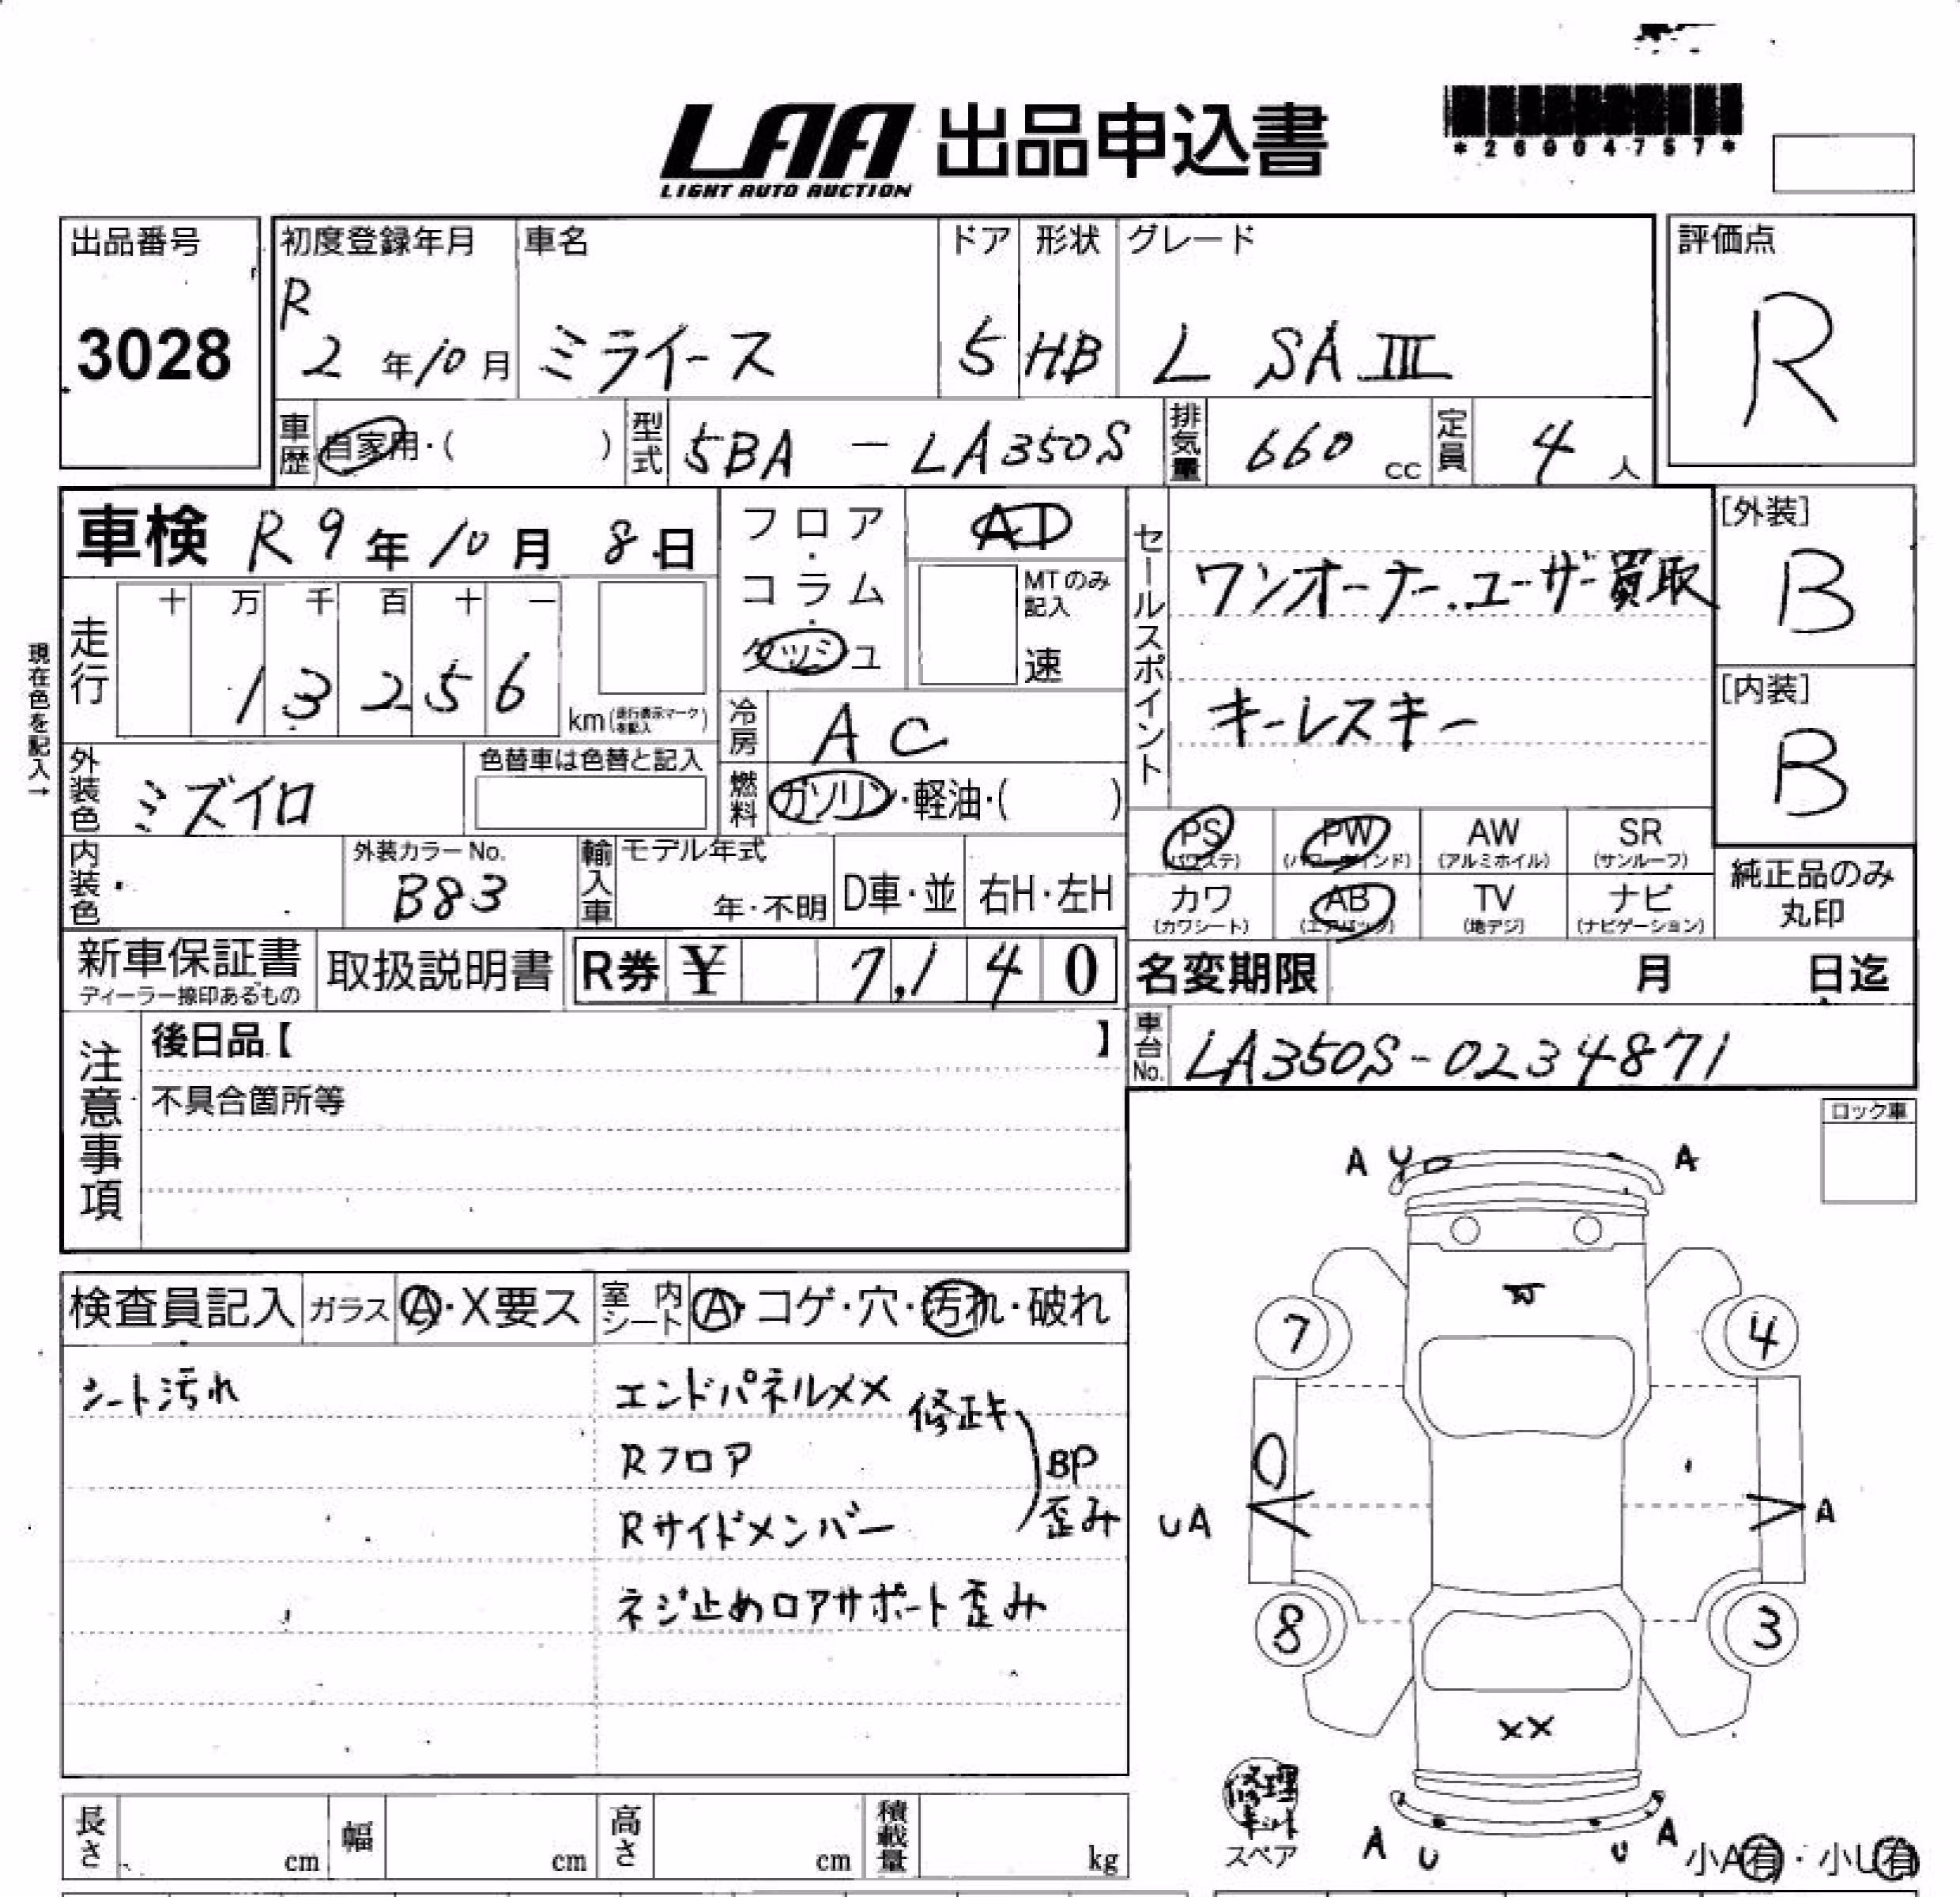 LAA 出品申込書
LIGHT AUTO AUCTION
*26004757*
出品番号 3028
初度登録年月 R 2年10月
車名 ミライース
ドア 5
形状 HB
グレード L SAⅢ
評価点 R
車歴 自家用・( )
型式 5BA - LA350S
排気量 660 cc
定員 4 人
車検 R9年10月8日
フロア・コラム・ダッシュ
AT
MTのみ記入
速
セールスポイント
ワンオーナー..ユーザー買取
キーレスキー
[外装] B
[内装] B
現在色を記入→
走行 十 万 千 百 十 一
1 3 2 5 6 km(走行表示マークを記入)
冷房 AC
外装色 ミズイロ
色替車は色替と記入
燃料 ガソリン・軽油・( )
PS (パワステ) PW (パワーウインド) AW (アルミホイル) SR (サンルーフ)
カワ (カワシート) AB (エアバッグ) TV (地デジ) ナビ (ナビゲーション)
純正品のみ丸印
内装色
外装カラーNo. B83
輸入車 モデル年式 年・不明 D車・並 右H・左H
新車保証書
ディーラー捺印あるもの
取扱説明書
R券 ¥ 7,140
名変期限 月 日迄
車台No. LA350S-0234871
注意事項
後日品【 】
不具合箇所等
ロック車
A Y A
検査員記入 ガラス A・X要ス 室内シート A・コゲ・穴・汚れ・破れ
シート汚れ
エンドパネルXX 修正キ
Rフロア
Rサイドメンバー
BP
歪み
ネジ止めロアサポート歪み
7 4
UA A
8 3
XX
修理キット
スペア
A U U A
小A有・小U有
長さ cm 幅 cm 高さ cm 積載量 kg